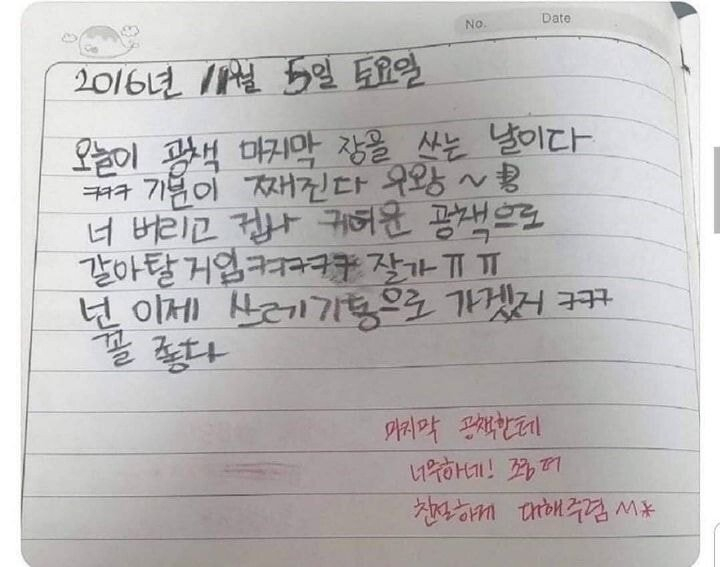 No.
Date
2016년 11월 5일 토요일
오늘이 공책 마지막 장을 쓰는 날이다
ㅋㅋㅋ 기분이 째진다 우왕~
너 버리고 겁나 귀여운 공책으로
갈아탈거임ㅋㅋㅋㅋㅋ 잘가ㅠㅠ
넌 이제 쓰레기통으로 가겠지 ㅋㅋㅋ
꼴 좋다
마지막 공책한테
너무하네! 조금 더
친절하게 대해주렴 ^^*